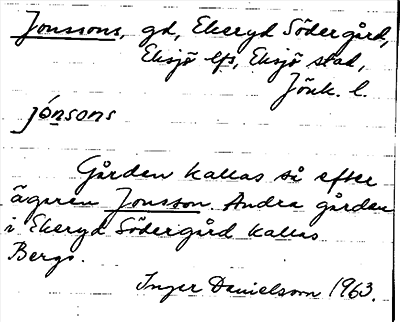 Jonssons, gd, Ekeryd Södergård,
Eksjö lfs, Eksjö stad,
Jönk. l.
jónsons
Gården kallas så efter
ägaren Jonsson. Andra gården
i Ekeryd Södergård kallas
Bergs.
Inger Danielsson 1963.